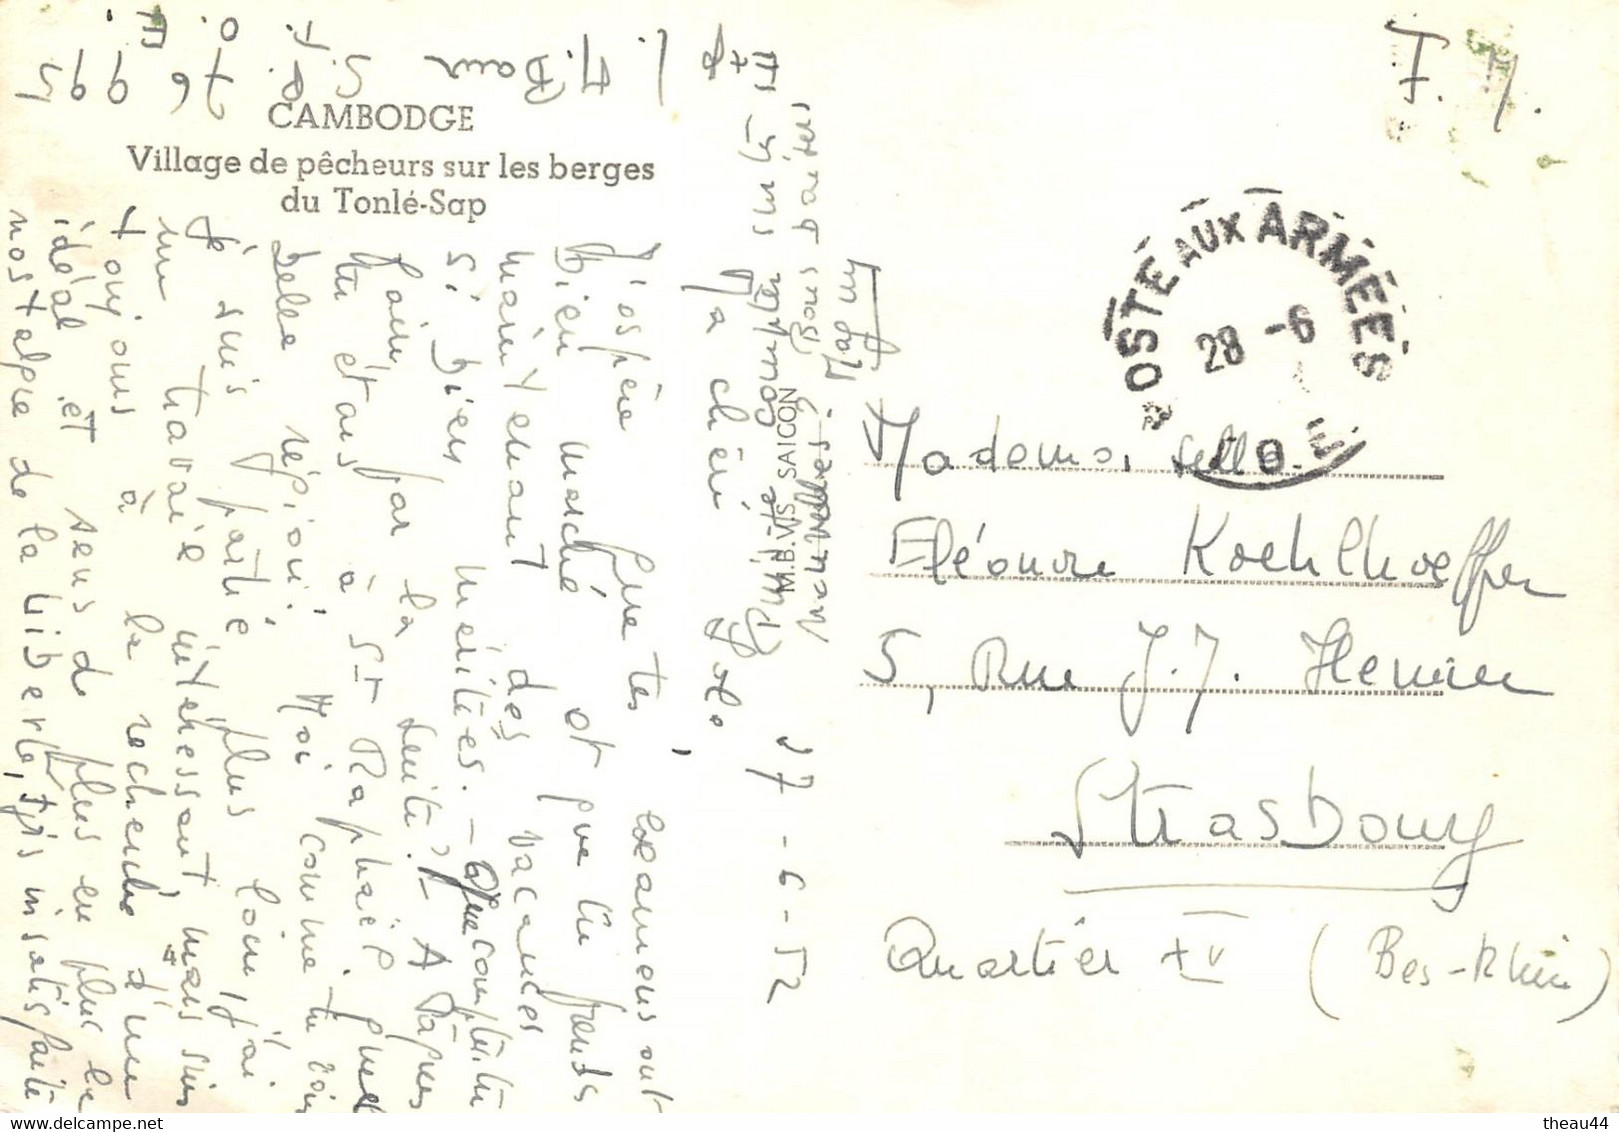 J. M. Baur
S. P.
T. O. E.
76 995
CAMBODGE
Village de pêcheurs sur les berges
du Tonlé-Sap
F. M.
POSTE AUX ARMÉES
28 -6
T.O.E.
27-6-52
Ma chère Lélo
J'espère que tes examens ont
bien marché et que tu prends
maintenant des vacances
si bien méritées. - Que comptes-tu
faire par la suite? - A Pâques
tu étais à St Raphaël. Quelle
belle région! Moi comme tu vois
je suis parti plus loin, j'ai
un travail intéressant mais suis
toujours à la recherche d'un
idéal et sens de plus en plus la
nostalgie de la liberté, suis insatisfaite
Bons baisers
Mady
M.B. VIS SAIGON
Mademoiselle
Eléonore Koehlhoeffer
5, Rue J.J. Henner
Strasbourg
Quartier XV (Bas-Rhin)
theau44